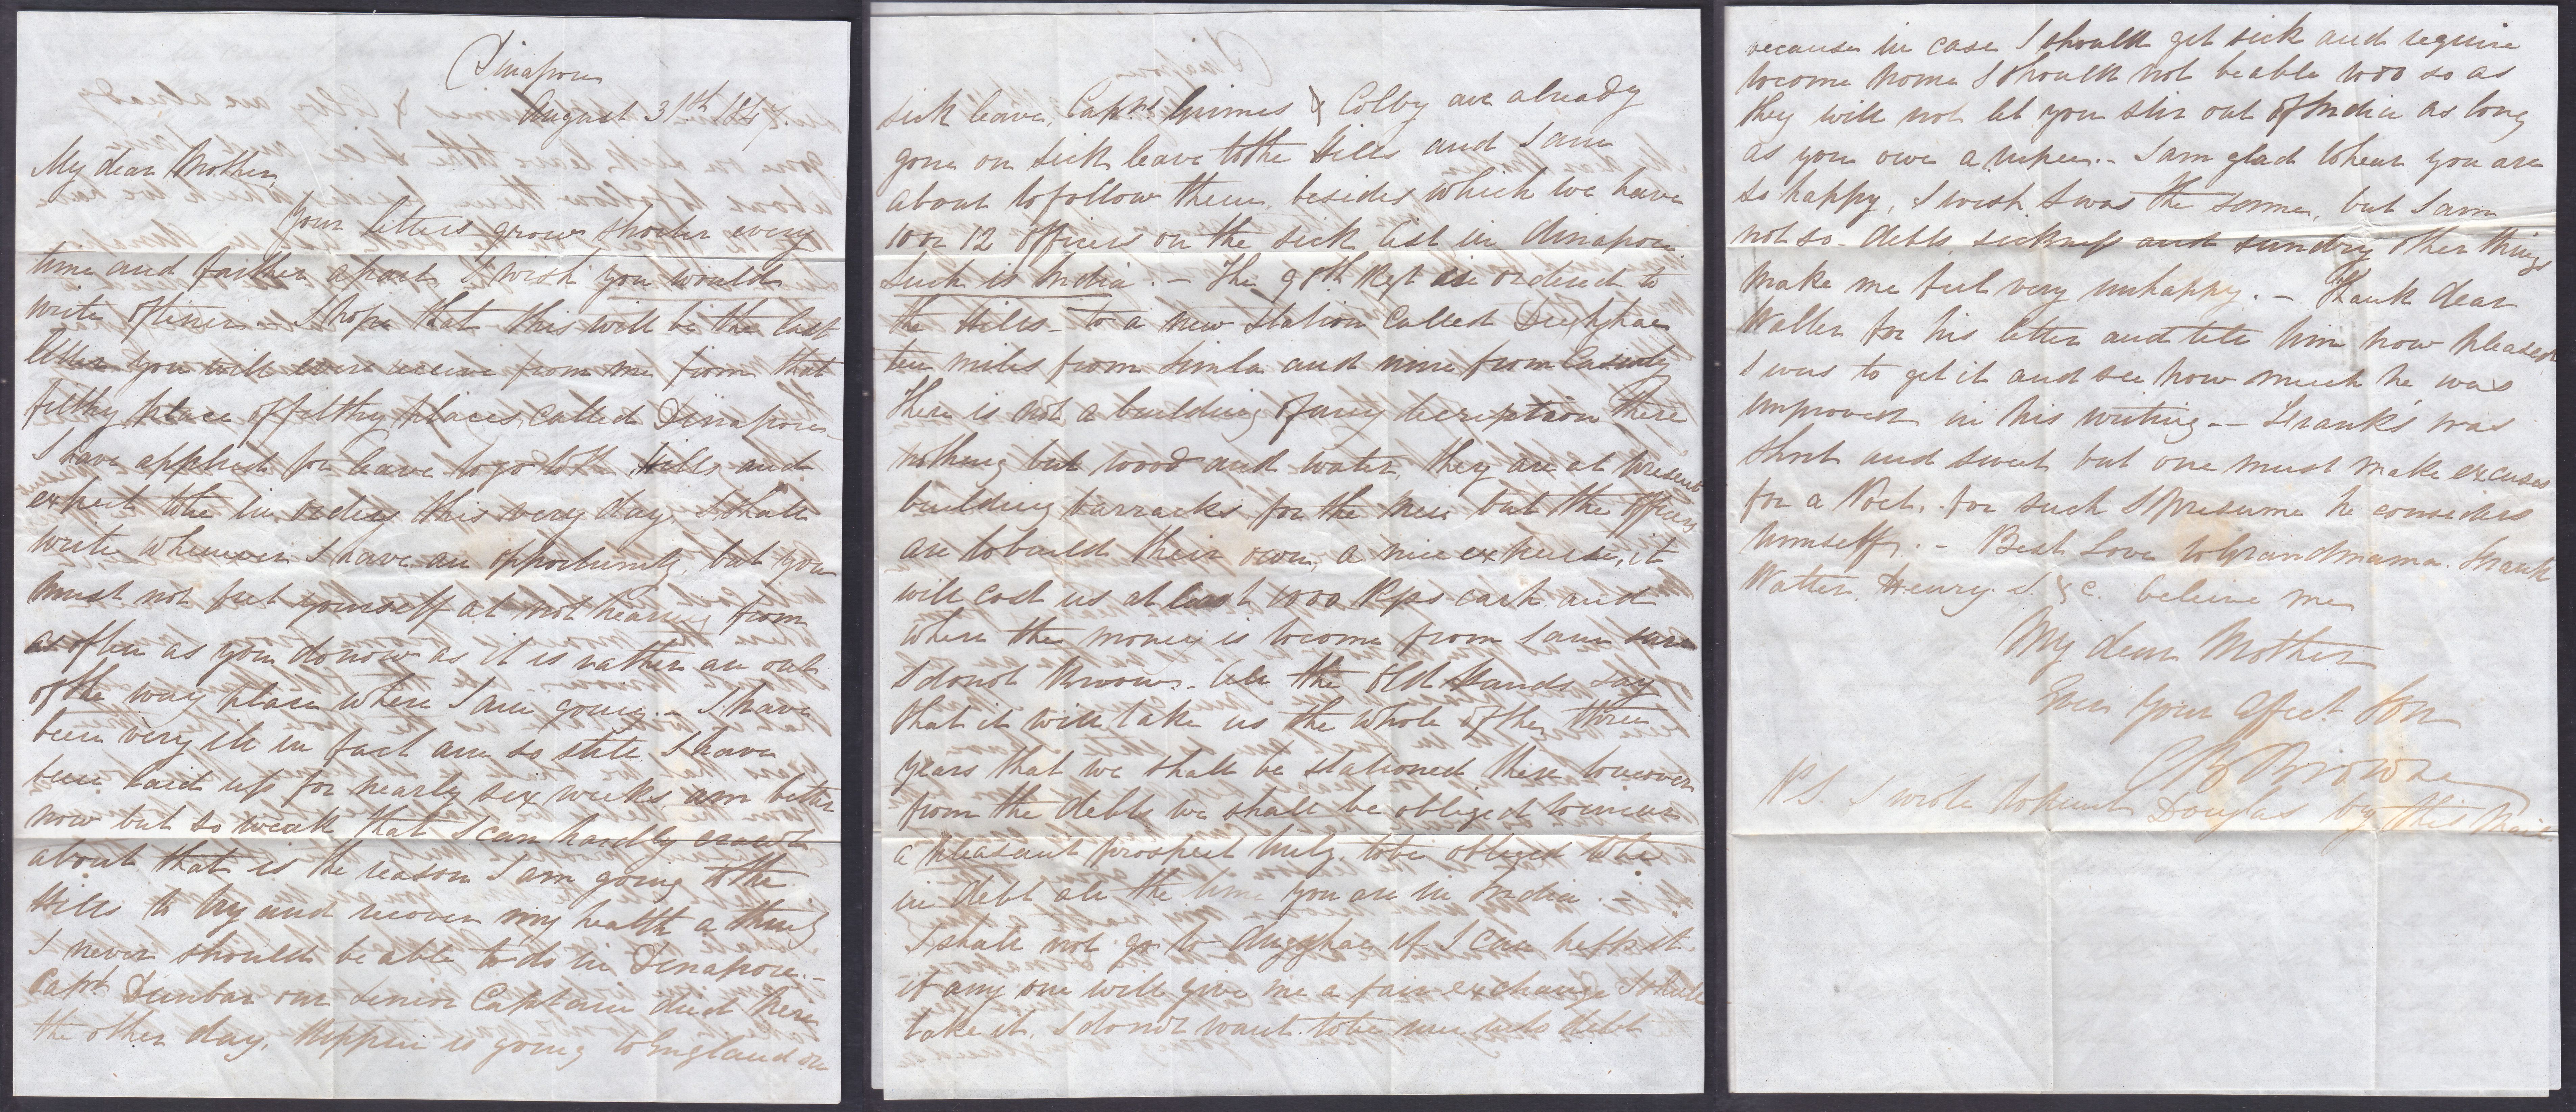 Dinapore
August 31st 1847.
My dear Mother,
Your letters grow shorter every
time and farther apart I wish you would
write oftener. I hope that this will be the last
letter you will ever receive from me from that
filthy place of filthy places, called Dinapore.
I have applied for leave to go to the Hills and
expect to be in orders this very day, I shall
write whenever I have an opportunity, but you
must not fret yourself at not hearing from
as often as you do now as it is rather an out
of the way place where I am going. - I have
been very ill in fact am so still. I have
been laid up for nearly six weeks, am better
now but so weak that I can hardly
about that is the reason I am going to the
Hills to try and recover my health a thing
I never should be able to do in Dinapore. -
Capt Dunbar our Senior Captain died here
the other day, is going to England on
sick leave, Capns Grimes & Colby are already
gone on sick leave to the Hills and I am
about to follow them, besides which we have
10 or 12 officers on the sick list in dinapore
Such is India. - The 98th Regt is ordered to
the Hills - to a new station called
ten miles from Simla and nine from
There is not a building of any description there
nothing but wood and water, they are at present
building barracks for the men but the officers
are to build their own, a nice expense, it
will cost us at least 1000 Rps each and
where the money is to come from I am sure
I do not know. - All the old hands say
that it will take us the whole of the three
years that we shall be stationed there to recover
from the debts we shall be obliged to incur
a pleasant prospect truly, to be obliged to be
in debt all the time you are in India. -
I shall not go to if I can help it.
if any one will give me a fair exchange I shall
take it, I do not want to be run into debt
because in case I should get sick and require
to come home I should not be able to do so as
they will not let you stir out of India as long
as you owe a rupee. - I am glad to hear you are
so happy, I wish I was the same, but I am
not so - debts sickness and sundry other things
make me feel very unhappy. - Thank dear
Walter for his letter and tell him how pleased
I was to get it and see how much he was
improved in his writing. - Frank's was
short and sweet but one must make excuses
for a Poet, for such I presume he considers
himself. - Best Love to Grandmama. Frank
Walter, Henry. &c. believe me
My dear Mother
Ever your affect Son
Browne
P.S. I wrote to Aunt Douglas by this Mail.